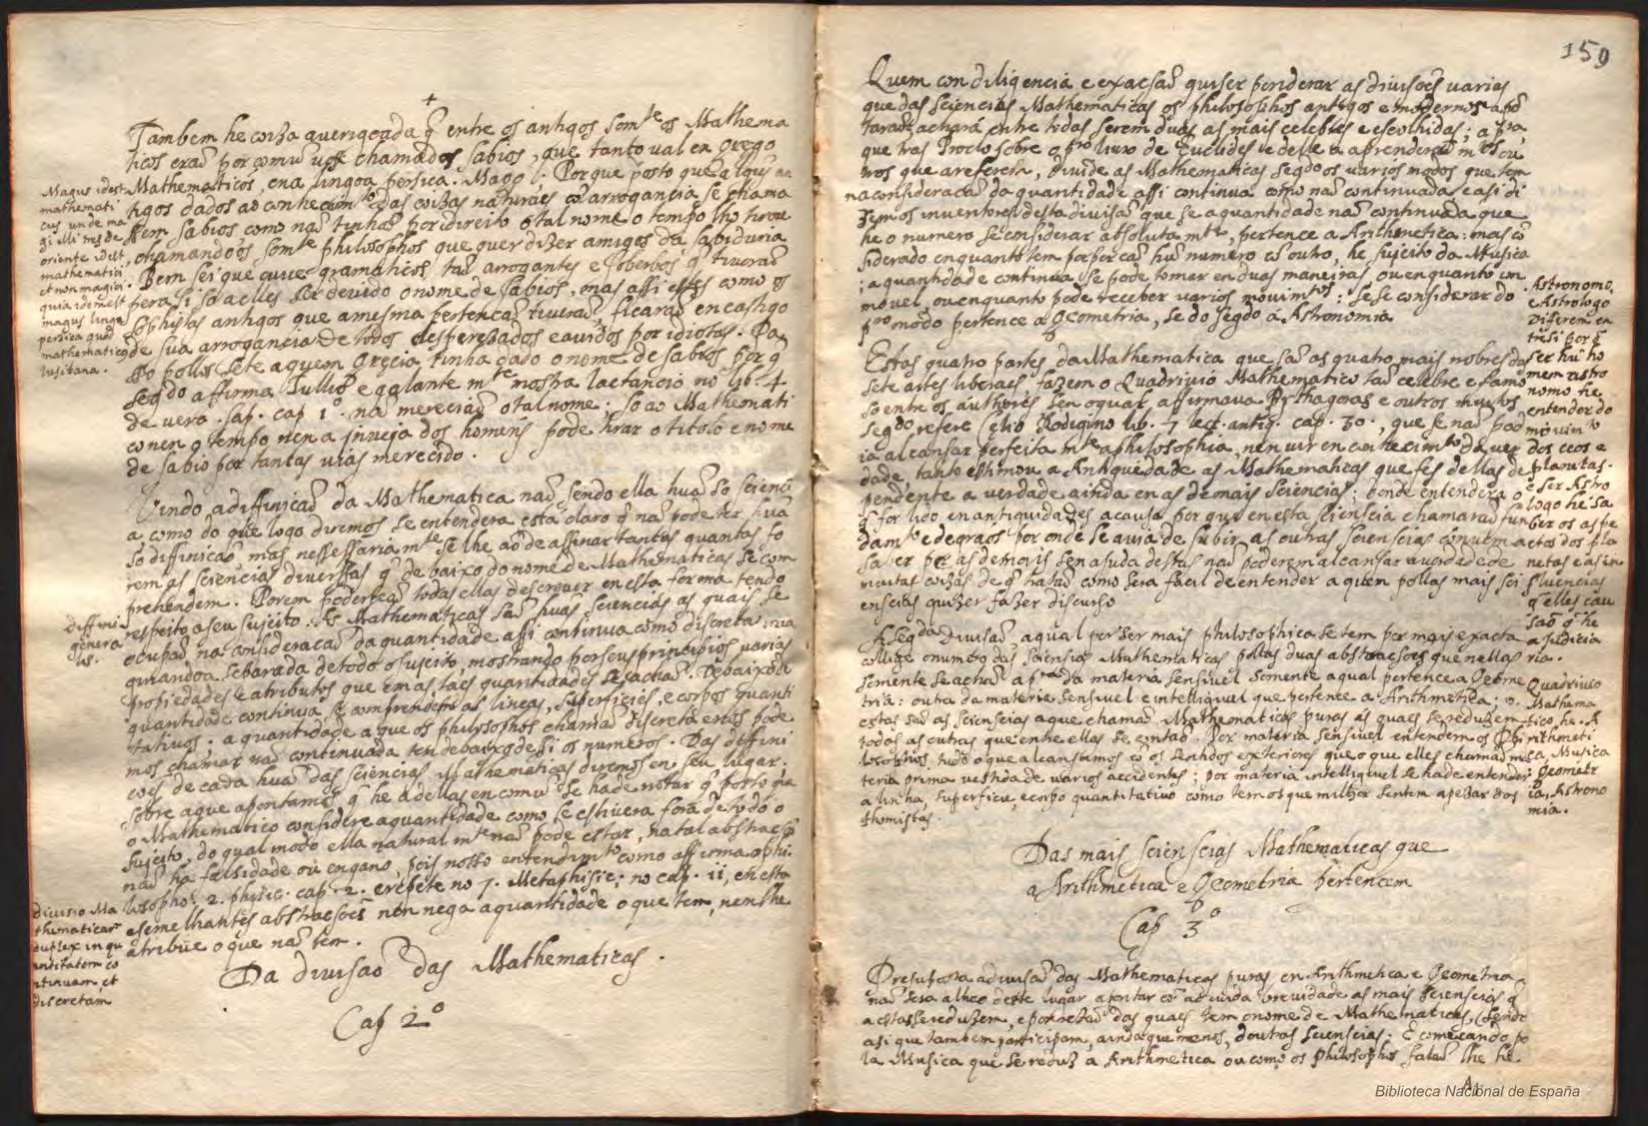 +
Tambem he couza averigoada q̃ entre os antigos somte os Mathema
ticos eraõ por comũ uzo chamados sabios, que tanto val en Grego
Mathematicos, ena lingoa persica. Mago j; Porque posto que alguũs an
tigos dados ao conhecimto das couzas naturaes cõ arrogancia se chama
ssem sabios como naõ tinhaõ por direito o tal nome o tempo lho tirou
, chamandoos somte philosophos que quer dizer amigos da sabiduria
. Bem sei que ouue gramaticos, taõ arrogantes e soberbos q̃ tiueraõ
pera si so a elles ser deuido o nome de sabios, mas assi estes como os
sophistas antigos que a mesma pertençaõ tiueraõ ficaraõ en castigo
de sua arrogancia de todos desprezados e auidos por idiotas. Da
do pollos sete aquem Grecia tinha dado o nome de sabios por q̃
segdo affirma Tullio e galante mte nosso Lactancio no lib. 4.
de vera. sap. cap 1º. naõ mereciaõ o tal nome. So ao Mathemati
co nen o tempo nen a jnueja dos homens pode tirar o titolo e nome
de sabio por tantas uias merecido.
Magus idest
mathemati
cus unde ma
gi illi tres de
oriente idest
mathematici
et non magici
quia idem est
magus lingua
persica quod
mathematico
lusitana.
Vindo a diffiniçaõ da Mathematica naõ sendo ella huã so scienci
a como do que logo diremos se entendera está claro q̃ naõ pode ter huã
so diffiniçaõ mas nessessaria mte se lhe aõ de assinar tantas quantas fo
rem as sciencias diuerssas q̃ de baixo do nome de Mathematicas se com
prehendem. Porem podermos todas ellas descreuer en esta forma tendo
respeito a seu sujeito. As Mathematicas saõ huãs sciencias as quais se
ocupaõ na consideraçaõ da quantidade assi continua como discreta
quiandoa sebarada de todo o sujeito, mostrando por seus principios varias
propiedades e atributos que en as taes quantidades se achaõ. Debaixo de
quantidade continua se comprendem as lineas, superficies, e corpos quanti
tatiuos; a quantidade a que os philosophos chamaõ discreta e nos pode
mos chamar naõ continuada ten debaixo de si os numeros. Das diffini
coẽs de cada huã das sciencias Mathematicas diremos en seu lugar.
sobre a que apontamos q̃ he a dellas en comũ se hade notar q̃ posto que
o Mathematico considere a quantidade como se estiuera fora de todo o
sujeito, do qual modo ella natural mte naõ pode estar, na tal abstracçaõ
naõ ha falsidade ou engano, pois nosso entendimto como affirma o phi
losopho. 2. phisic. cap. 2. e repete no 7. Metaphisic; no cap. 11, en esta
e semelhantes abstracsoẽs nen nega a quantidade o que tem, nen lhe
atribue o que naõ tem.
diffini
genera
lis.
diuisio Ma
thematicarũ
duplex in qu
antitatem co
ntinuam, et
discretam
Da diuisaõ das Mathematicas.
Cap 2º
159
Quem con diligencia e exacsaõ quiser ponderar as diuisoẽs varias
que das sciencias Mathematicas os philosophos antigos e modernos apõ
taraõ achará entre todas serem duas as mais celebres e escolhidas; a pra
que tras Proclo sobre o pro liuro de Euclides e delle a aprenderaõ mtos ou
tros que a referem, diuide as Mathematicas segdo os varios modos que tem
na consideraçaõ da quantidade assi continua como naõ continuada e asi di
zem os inuentores desta diuisaõ que se a quantidade naõ continuada que
he o numero se considerar absoluta mte, pertence a Arithmetica: mas cõ
siderado enquanto tem proporçaõ hũ numero cõ outro, he sujeito da Musica
; a quantidade continua se pode tomar en duas maneiras ou enquanto im
mouel, ou enquanto pode receber varios mouimtos: se se considerar do
pro modo pertence a Geometria, se do segdo á Astronomia
Estas quatro partes da Mathematica que saõ as quatro mais nobres das
sete artes liberaes fazem o Quadriuio Mathematico taõ celebre e famo
so entre os authores sen o qual affirmaua Pythagoras e outros muitos
segdo refere Celio Rodigino lib. 7 lect. antiq. cap. 30., que se naõ pod
ia alcansar perfeita mte a philosophia, nen uir en conhecimto da uer
dade, tanto estimou a Antiguedade as Mathematicas que fes dellas de
pendente a uerdade ainda en as demais sciencias; donde entendera o
q̃ for lido en antiguidades a causa por que en esta sciencia chamaraõ fun
damto e degraos por onde se auia de subir as outras sciencias conuem a
saber por as demais sen ajuda destas naõ poderem alcansar a uerdade de
muitas couzas de q̃ trataõ como sera facil de entender a quem pollas mais sci
enscias quizer fazer discurso
Astronomo,
e Astrologo
Diferem en
tresi por q̃
ser hũ ho
mem astro
nomo he
entendor do
mouimto
dos ceos e
planetas.
e ser Astro
logo he sa
ber os aspe
ctos dos pla
netas e as in
fluencias
q̃ elles cau
saõ q̃ he
a Judicia
ria.
A segda diuisaõ a qual por ser mais philosophica se tem por mais exacta
collige o numero das sciensias Mathematicas pollas duas abstracsoẽs que nellas
somente se achaõ a pra da materia sensiuel somente a qual pertence a Geome
tria: outra da materia sensiuel e intelligiuel que pertence a Arithmetica;
estas saõ as sciensias a que chamaõ Mathematicas puras as quaes se reduzem
todas as outras que entre ellas se contaõ. Por materia sensiuel entendem os Phi
losophos, tudo o que alcansamos cõ os sentidos exteriores que o que elles chamaõ ma
teria prima uestida de uarios accidentes; por materia intelligiuel se hade entender
a linha, superficie, e corpo quantitatiuo como tem os que milhor sentem a pezar dos
thomistas.
Quadriuio
Mathema
tico, ha. A
rithmeti
ca, Musica
Geometr
ia, Astrono
mia.
Das mais scienscias Mathematicas que
a Arithmetica e Geometria pertencem
Cap 3º
Presuposta a diuisaõ das Mathematicas puras en Arithmetica e Geometria
naõ sera alheo deste lugar apontar cõ a deuida breuidade as mais scienscias q̃
a estas se reduzem, e por rezaõ das quaes tem o nome de Mathematicas, sendo
asi que tambem participam, ainda que menos, doutras scienscias: E começando po
la Musica que se reduz a Arithmetica ou como os philosophos falaõ lhe he.
Biblioteca Nacional de España